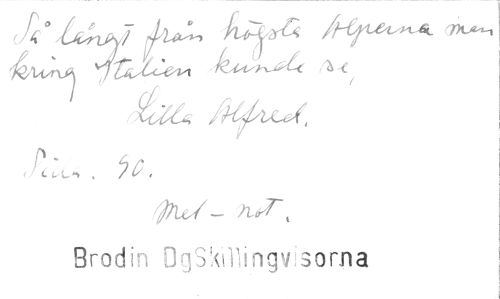 Så långt från högsta Alperna man
kring Italien kunde se,
Lilla Alfred.
Sida. 90.
Mel-not.
Brodin DgSkillingvisorna